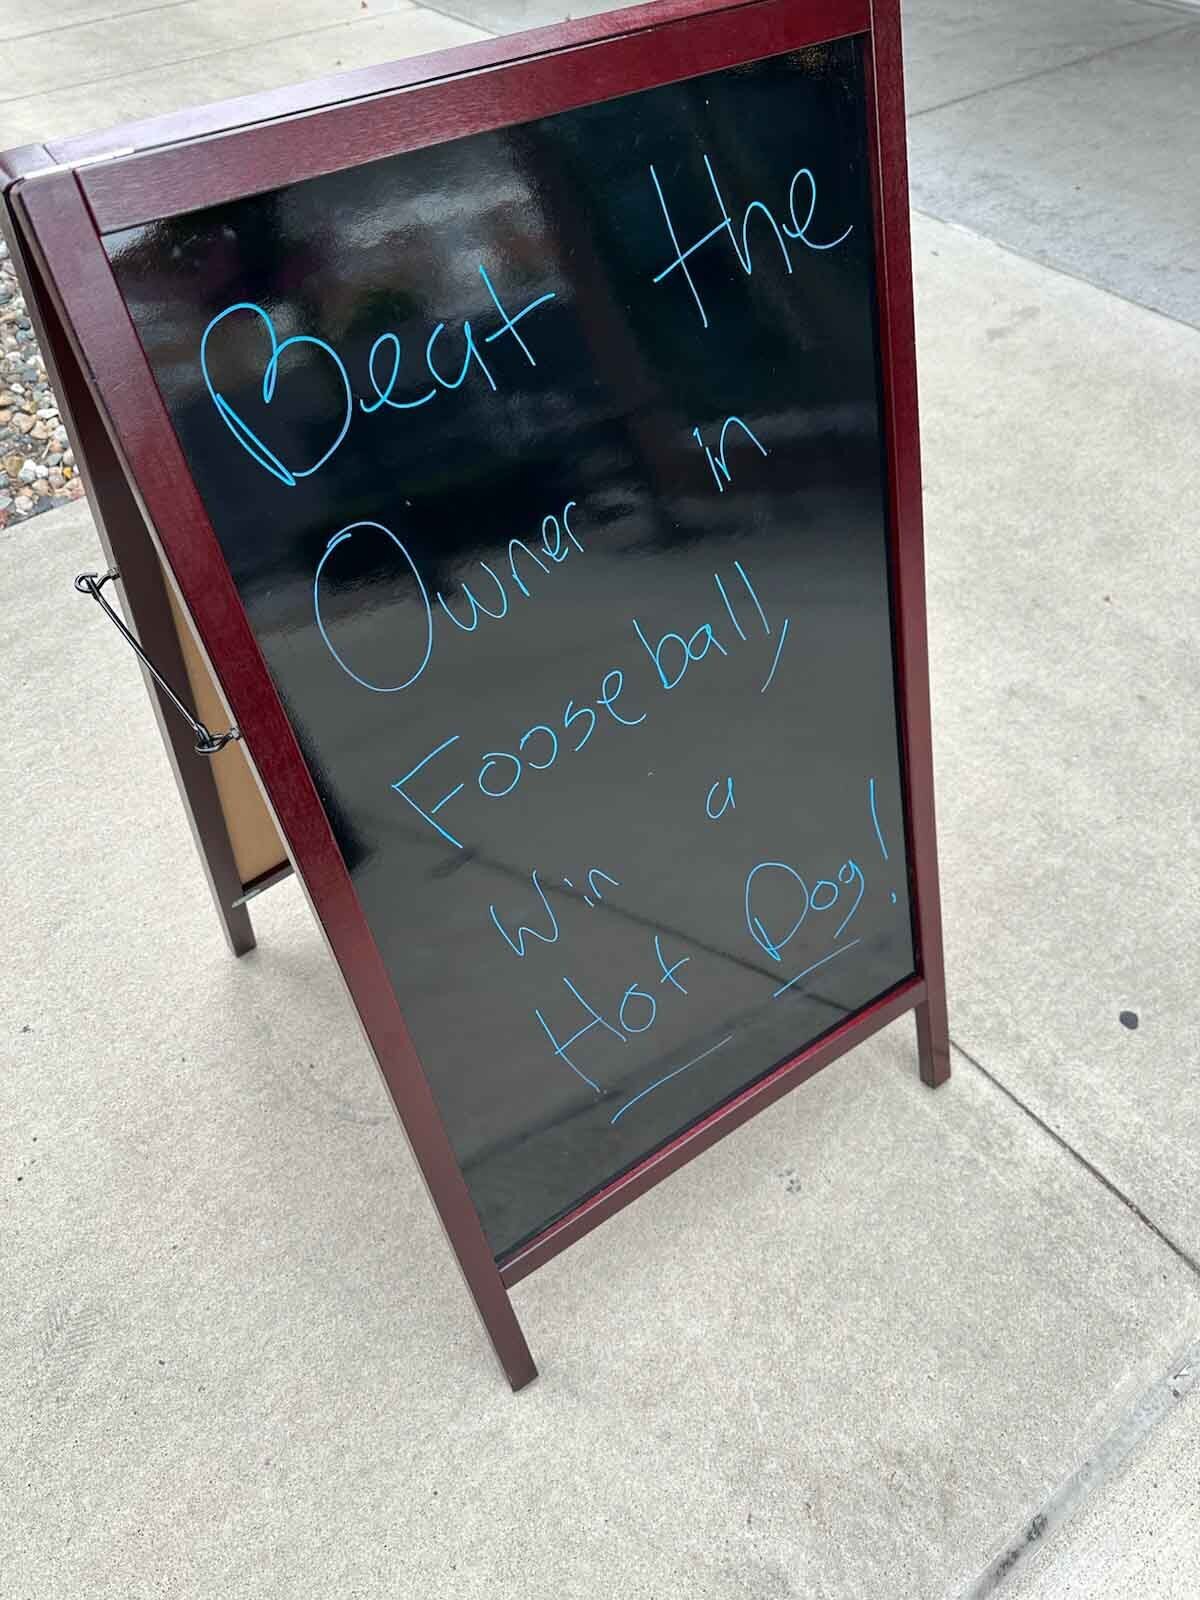 Beat the
Owner in
Fooseball,
Win a
Hot Dog!